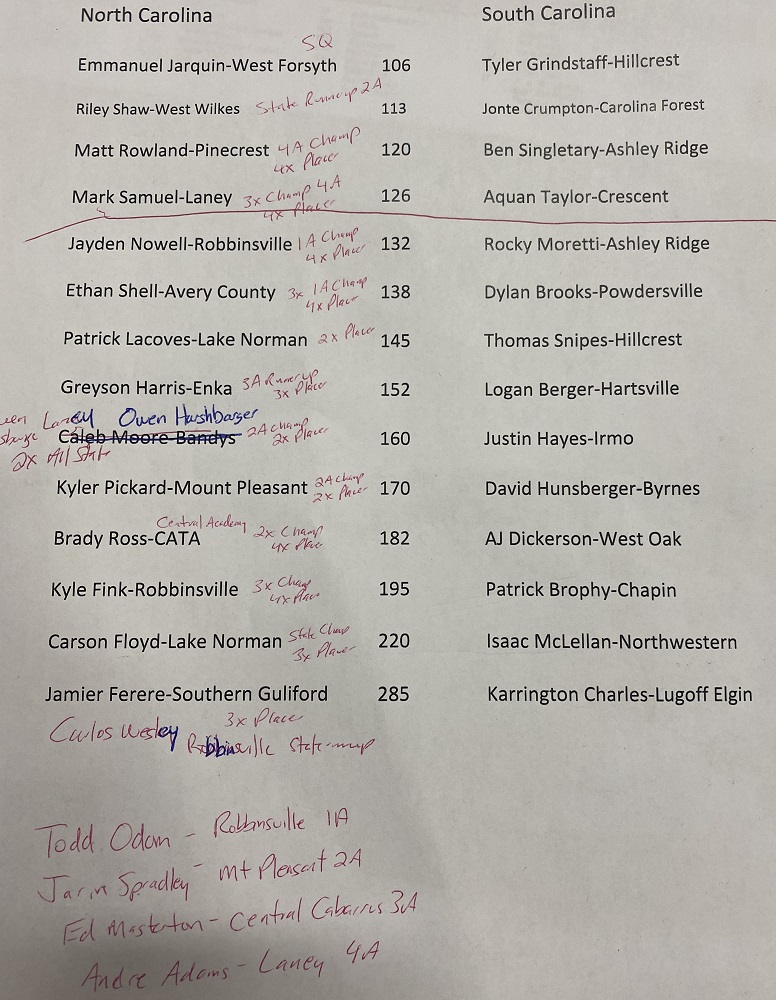 North Carolina South Carolina
SQ
Emmanuel Jarquin-West Forsyth 106 Tyler Grindstaff-Hillcrest
Riley Shaw-West Wilkes State Runnerup 2A 113 Jonte Crumpton-Carolina Forest
Matt Rowland-Pinecrest 4A Champ 120 Ben Singletary-Ashley Ridge
4x Placer
Mark Samuel-Laney 3x Champ 4A 126 Aquan Taylor-Crescent
4x Placer
Jayden Nowell-Robbinsville 1A Champ 132 Rocky Moretti-Ashley Ridge
4x Placer
Ethan Shell-Avery County 3x 1A Champ 138 Dylan Brooks-Powdersville
4x Placer
Patrick Lacoves-Lake Norman 2x Placer 145 Thomas Snipes-Hillcrest
Greyson Harris-Enka 3A Runnerup 152 Logan Berger-Hartsville
3x Placer
Laney Owen Harshbarger
Caleb Moore-Bandys 2A Champ 160 Justin Hayes-Irmo
2x Placer
2x All State
Kyler Pickard-Mount Pleasant 2A Champ 170 David Hunsberger-Byrnes
2x Placer
Central Academy
Brady Ross-CATA 2x Champ 182 AJ Dickerson-West Oak
4x Placer
Kyle Fink-Robbinsville 3x Champ 195 Patrick Brophy-Chapin
4x Placer
Carson Floyd-Lake Norman State Champ 220 Isaac McLellan-Northwestern
3x Placer
Jamier Ferere-Southern Guliford 285 Karrington Charles-Lugoff Elgin
3x Place
Carlos Wesley Robbinsville State
Todd Odom - Robbinsville 1A
Jarin Spradley - Mt Pleasant 2A
Ed Masterton - Central Cabarrus 3A
Andre Adams - Laney 4A